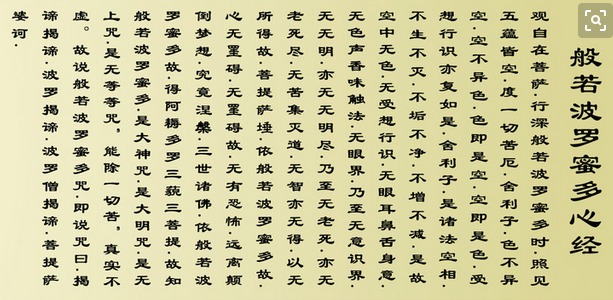 般若波罗蜜多心经
观自在菩萨·行深般若波罗蜜多时·照见
五蕴皆空·度一切苦厄·舍利子·色不异
空·空不异色·色即是空·空即是色·受
想行识亦复如是·舍利子·是诸法空相·
不生不灭·不垢不净·不增不减·是故
空中无色·无受想行识·无眼耳鼻舌身意·
无色声香味触法·无眼界·乃至无意识界·
无无明·亦无无明尽·乃至无老死·亦无
老死尽·无苦集灭道·无智亦无得·以无
所得故·菩提萨埵·依般若波罗蜜多故·
心无罣碍·无罣碍故·无有恐怖·远离颠
倒梦想·究竟涅槃·三世诸佛·依般若波
罗蜜多故·得阿耨多罗三藐三菩提·故知
般若波罗蜜多·是大神咒·是大明咒·是无
上咒·是无等等咒。能除一切苦。真实不
虚。故说般若波罗蜜多咒·即说咒曰·揭
谛揭谛·波罗揭谛·波罗僧揭谛·菩提萨
婆诃·